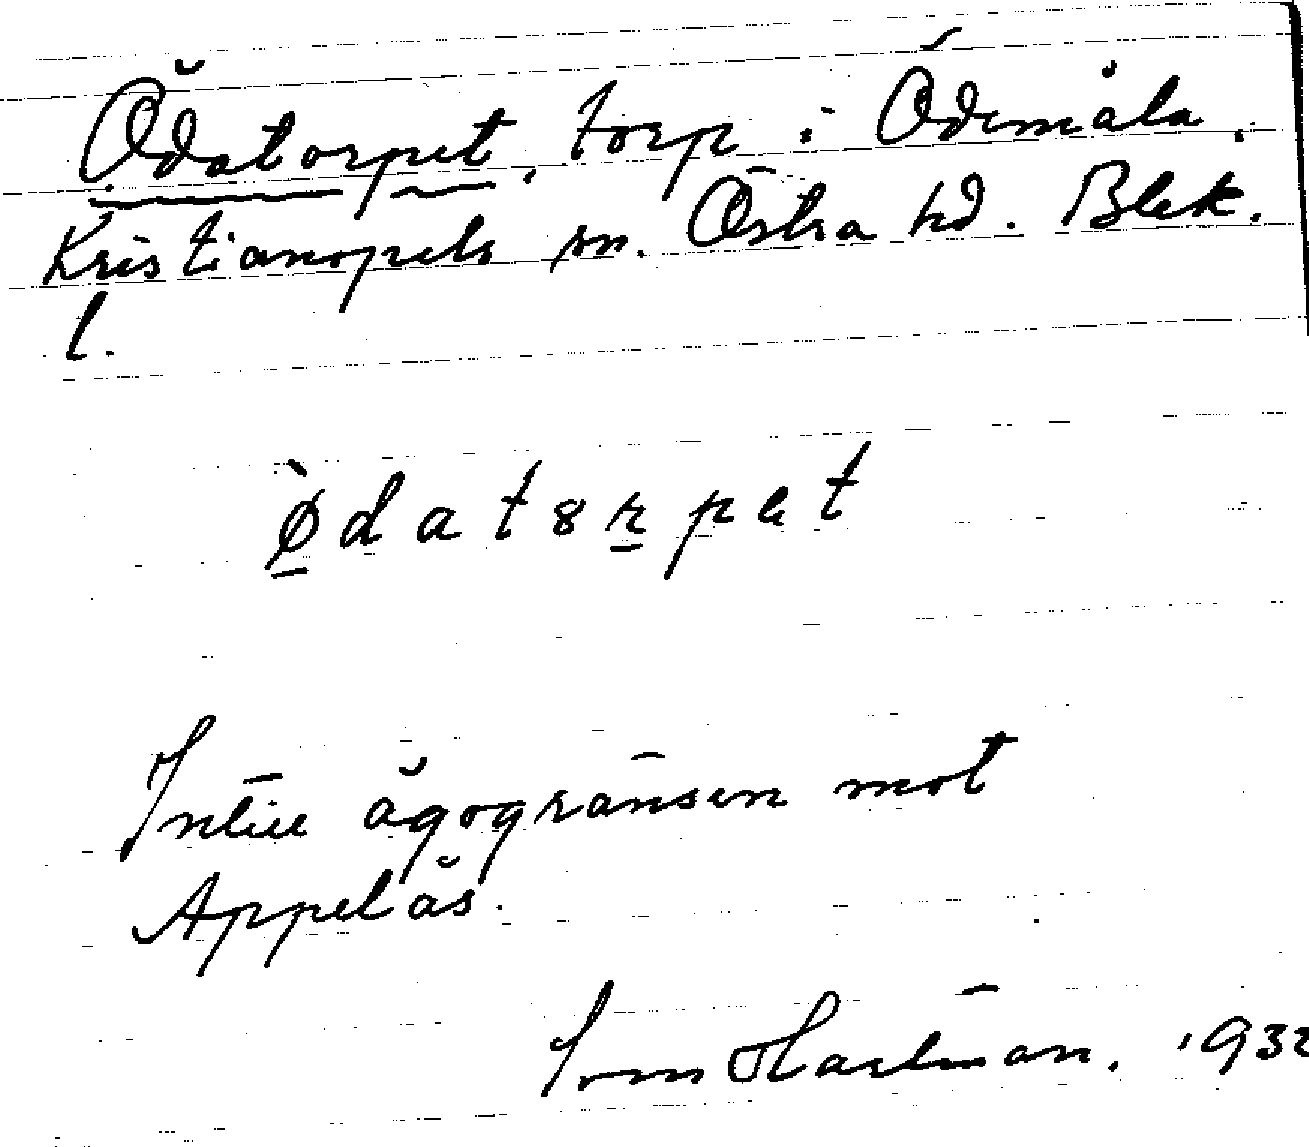 Ödatorpet, torp i Ödemåla,
Kristianopels sn. Östra hd. Blek.
l.
Ø̀datȣrpet
Intill ägogränsen mot
Appelås.
Ivan Hartman. 1932